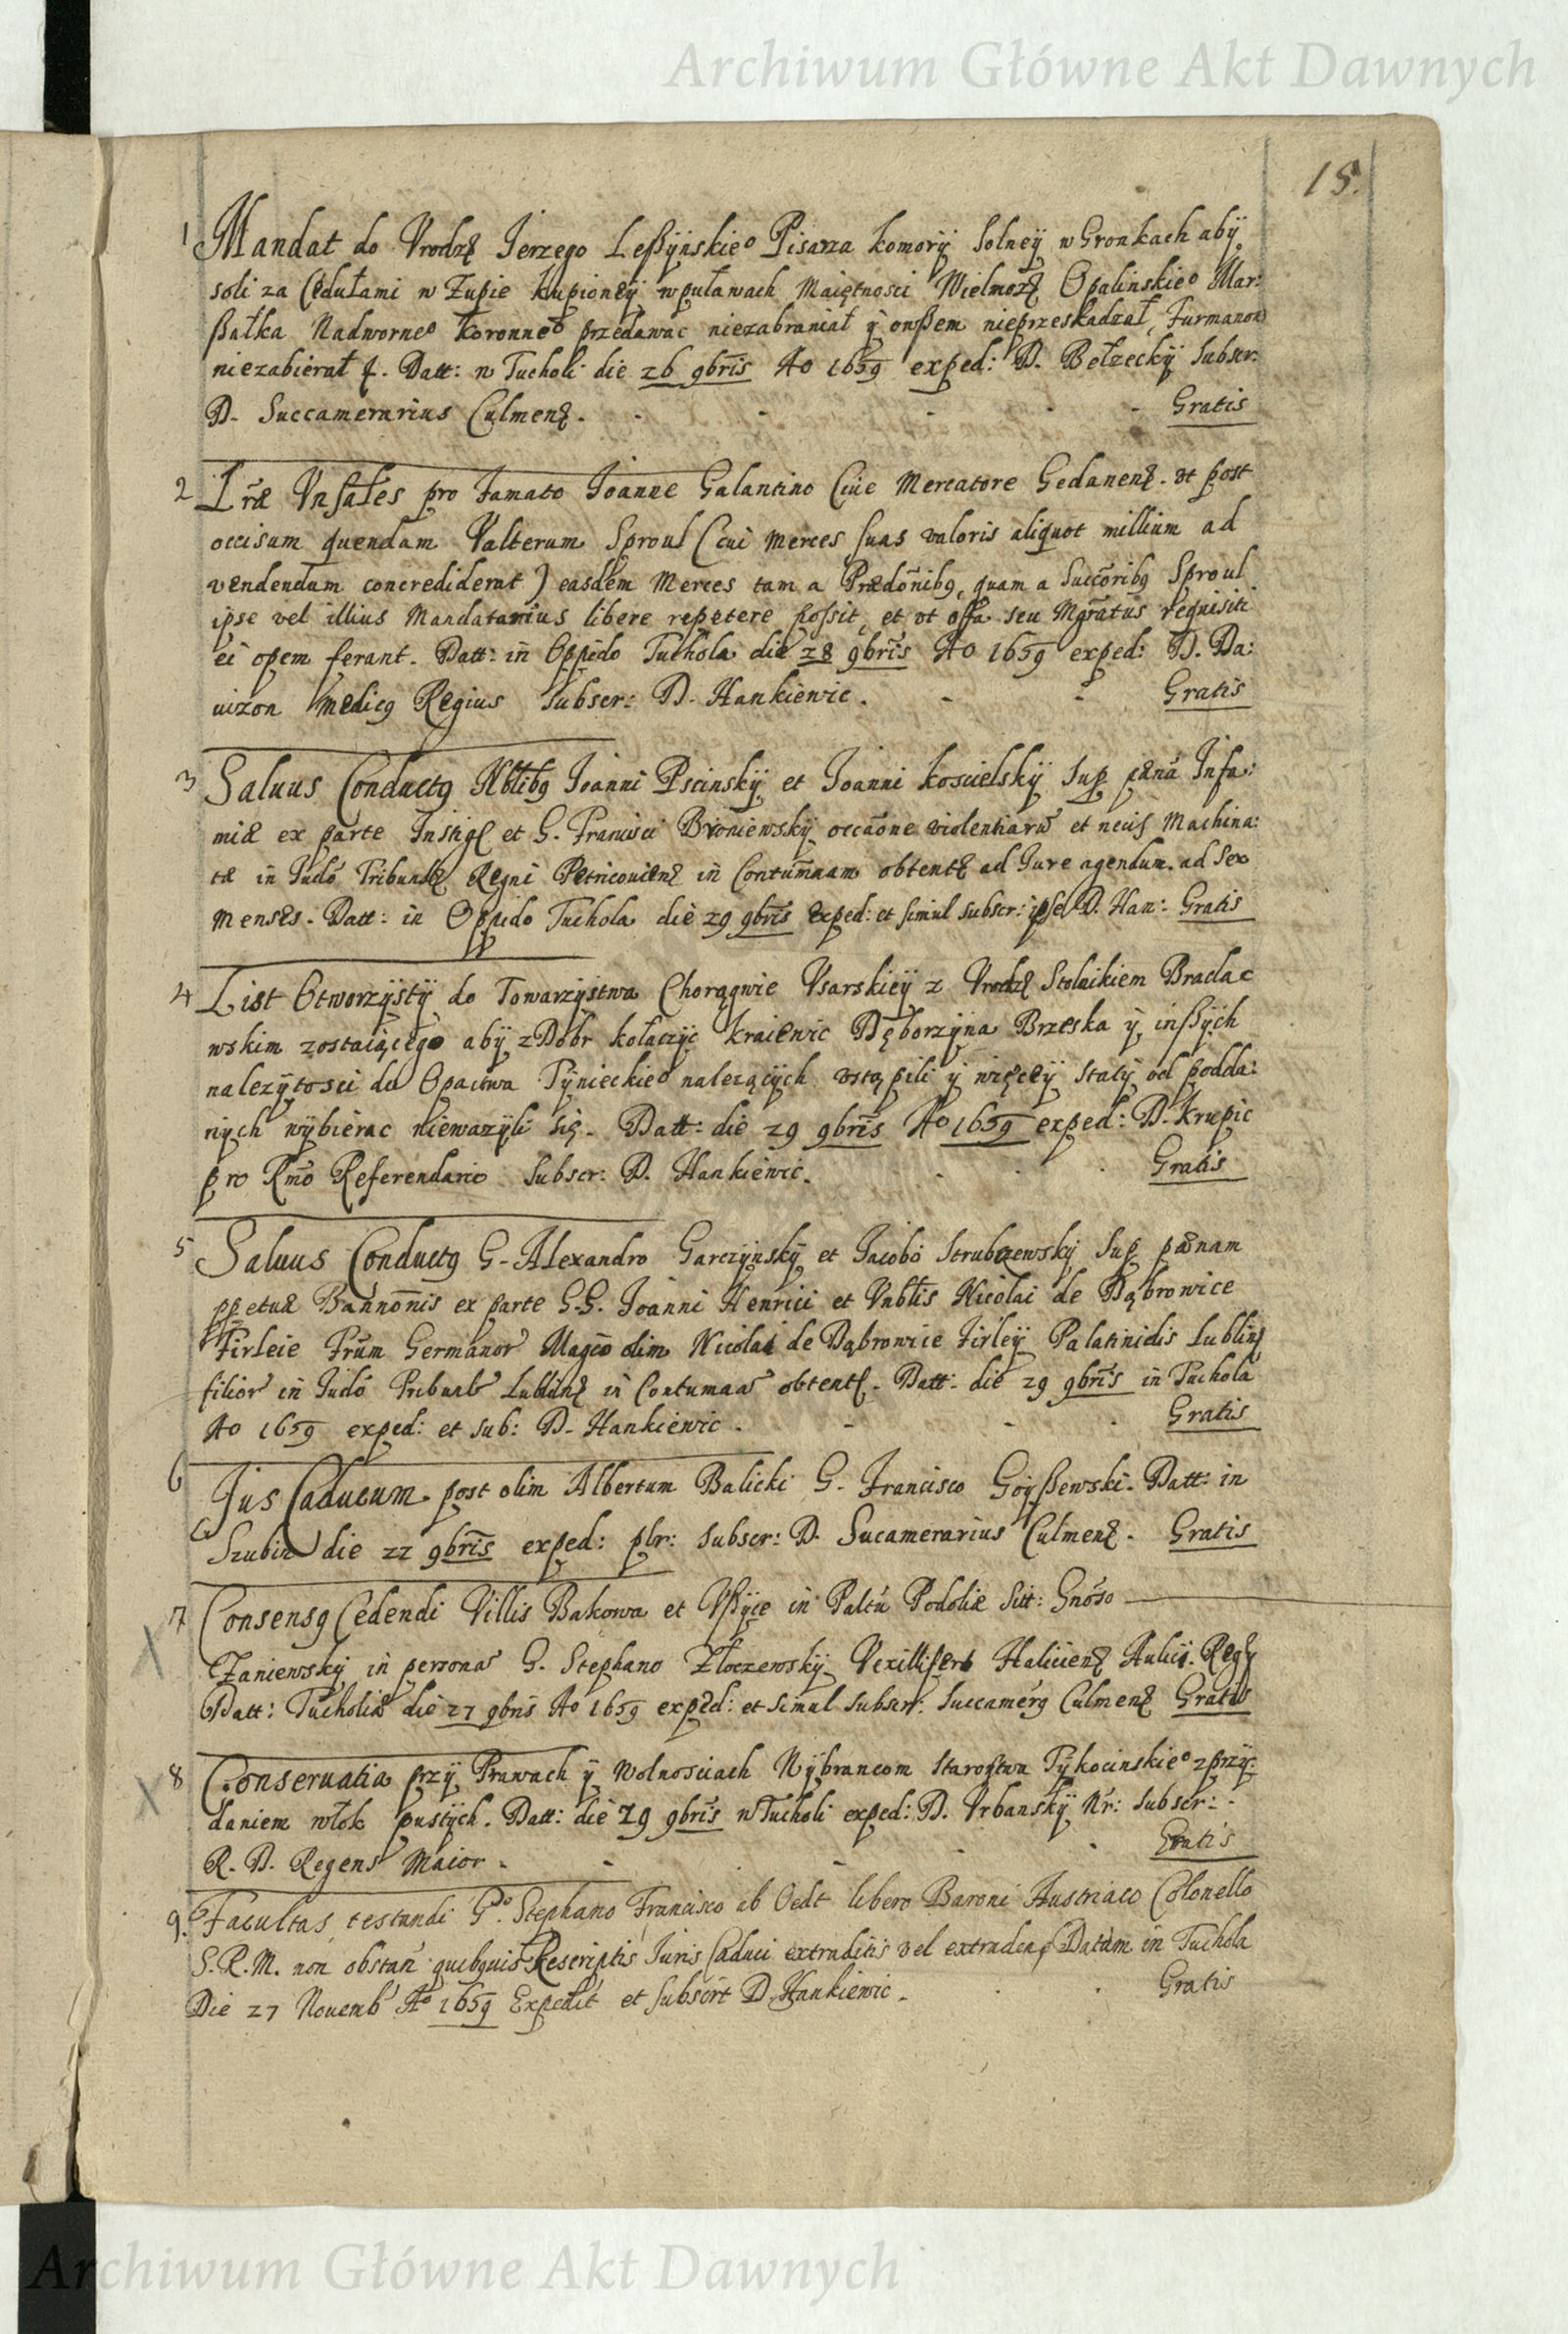 Archiwum Główne Akt Dawnych
15.
1 Mandat do Vrodz Jerzego Leßÿnskie⁰ Pisarza komorÿ Solneÿ w Gronkach abÿ
soli za Cedułami w Zupie kupioneÿ w pulawach Maiętnosci Wielmoz Opalinskie⁰ Mar:
ßałka Nadworne⁰ Koronne⁰ przedawac niezabraniał ÿ onßem nieprzeskadzał, Furmanow
niezabierał Datt: w Tucholi die 26 9bris Ao 1659 exped: D. Bełzeckÿ Subscr:
D. Succamerarius Culmen. Gratis
2 Lræ Vnsales pro Famato Joanne Galantino Ciue Mercatore Gedanen. vt post
occisum quendam Valterum Sproul (cui Merces suas valoris aliquot millium ad
vendendum concrediderat) easdem Merces tam a Prædonibg, quam a Succoribg Sproul
ipse vel illius Mandatarius libere repetere possit, et vt offa seu Mgratus requisiti
ei opem ferant. Datt: in Oppido Tuchola die 28 9bris Ao 1659 exped: D. Da:
uizon Medicg Regius Subscr: D. Hankiewic. Gratis
3 Saluus Conductg Nblibg Joanni Pscinskÿ et Joanni Koscielskÿ Sup pænã Infa:
miæ ex parte Instig et G. Francisci Broniewskÿ occaone violentiaru et necis Machina:
tæ in Judo Tribunal Regni Petricouien in Contumnam obtent ad Jure agendum ad sex
Menses. Datt: in Oppido Tuchola die 29 9bris Exped: et simul subscr: ipse D. Han: Gratis
4 List Otworzÿstÿ do Towarzÿstwa Chorągwie Vsarskieÿ z Vrodz Stolnikiem Braclac
wskim zostaiącego abÿ z Dobr kołaczÿc kraiewic Dęborzÿna Brzeska ÿ inßÿch
nalezÿtosci do Opactwa Tÿnieckie⁰ nalezącÿch vstąpili ÿ więceÿ Statÿ od podda:
nÿch wÿbierac niewazÿli się. Datt: die 29 9bris Ao 1659 exped: D. Krupic
pro Rmo Referendario Subscr: D. Hankiewic. Gratis
5 Saluus Conductg G. Alexandro Garczÿnskÿ et Jacobo Strubczewskÿ Sup pænam
ppetuæ Bannonis ex parte G.G. Joanni Henrici et Vnblis Nicolai de Dąbrowice
Firleie Frum Germanor Magco olim Nicolai de Dąbrowice Firleÿ Palatinidis Lublin
filior in Judo Tribunal Lublin in Contumaa obtent. Datt: die 29 9bris in Tuchola
Ao 1659 exped: et sub: D. Hankiewic. Gratis
6 Jus Caducum post olim Albertum Balicki G. Francisco Goÿßewski. Datt: in
Szubin die 22 9bris exped: plr: subscr: D. Sucamerarius Culmen. Gratis
7 Consensg Cedendi Villis Bakowa et Vßÿce in Paltu Podoliæ Sitt: Gnoso
Czaniewskÿ in persona G. Stephano Złoczewskÿ Vexillifero Halicien Aulici Reg
Datt: Tucholiæ die 27 9bris Ao 1659 exped: et simul subscr: Succamerg Culmen Gratis
8 Conseruatia przÿ Prawach ÿ Wolnosciach Wÿbrancom Starostwa Tÿkocinskie⁰ z przÿ:
daniem włok pustÿch. Datt: die 29 9bris w Tucholi exped: D. Vrbanskÿ Nr: Subscr:
R. D. Regens Maior. Gratis
9. Facultas testandi G⁰. Stephano Francisco ab Oedt libero Baroni Austriaco Colonello
S.R.M. non obstan quibquis Rescriptis Juris Caduci extraditis vel extraden. Datum in Tuchola
Die 27 Nouemb A⁰ 1659 Expedit et Subscrt D. Hankiewic. Gratis
Archiwum Główne Akt Dawnych